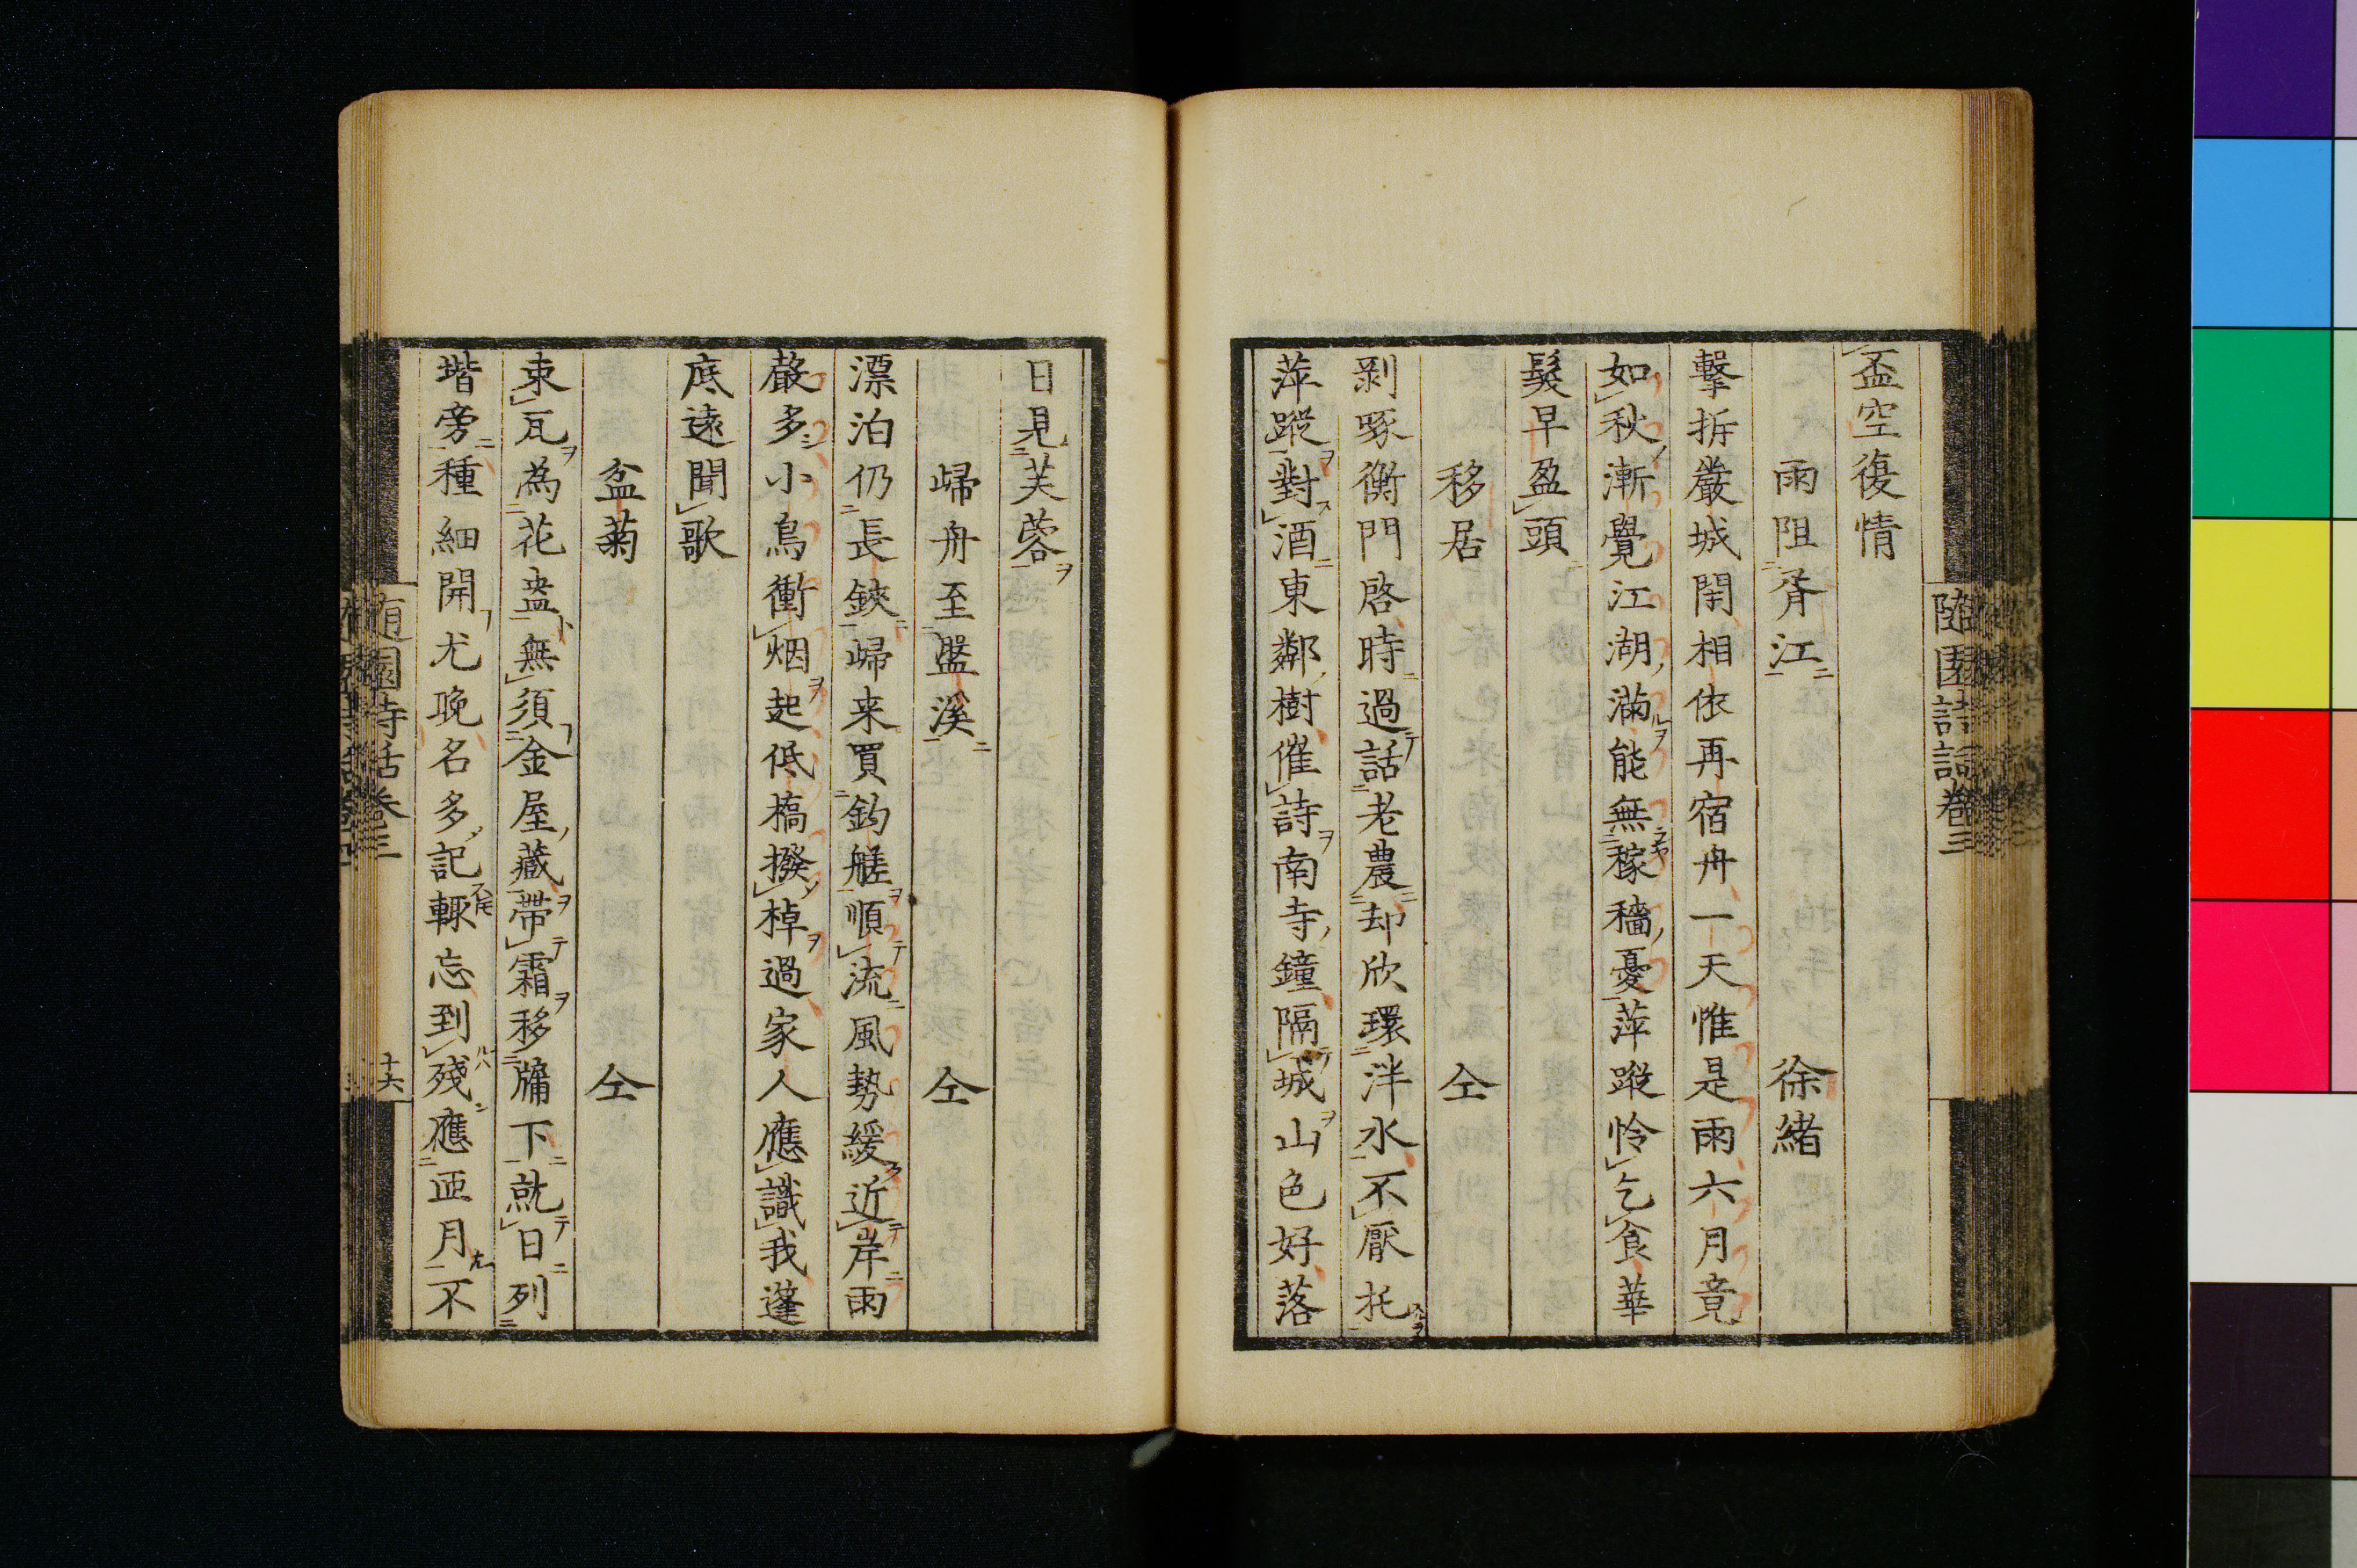 盃空復情
雨阻胥江 徐緒
擊拆嚴城閉相依再宿舟一天惟是雨六月竟
如秋漸覺江湖滿能無稼穡憂萍蹤怜乞食華
髮早盈頭
移居 仝
剥啄衡門啓時過話老農却欣環泮水不厭托
萍蹤對酒東鄰樹催詩南寺鐘隔城山色好落
隨園詩話卷三
日見芙蓉
歸舟至盤溪 仝
漂泊仍長鋏歸来買釣艖順流風勢緩近岸雨
聲多小鳥衝烟起低槁撥棹過家人應識我蓬
底遠聞歌
盆菊 仝
束瓦為花盎無須金屋藏帶霜移牖下就日列
堦旁種細開尤晚名多記輙忘到殘應匝月不
隨園詩話卷三
十六